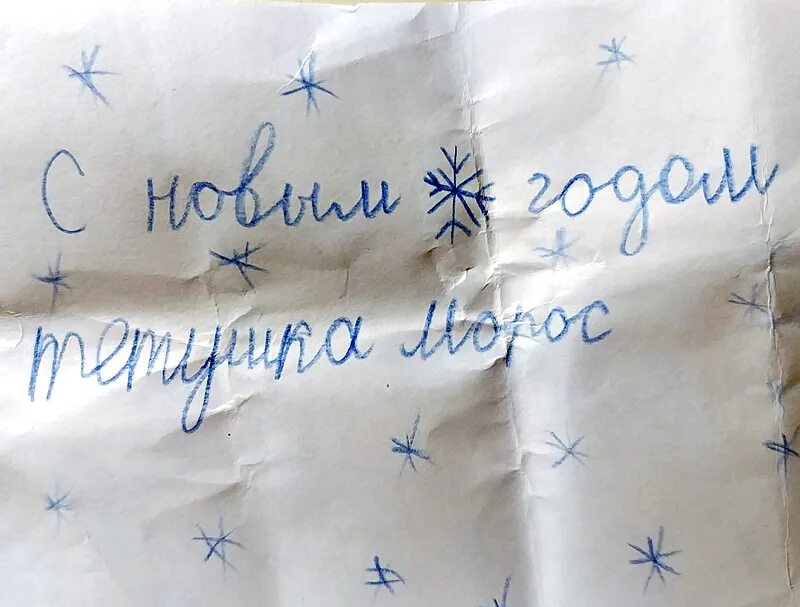 С новым годом
тетушка морос